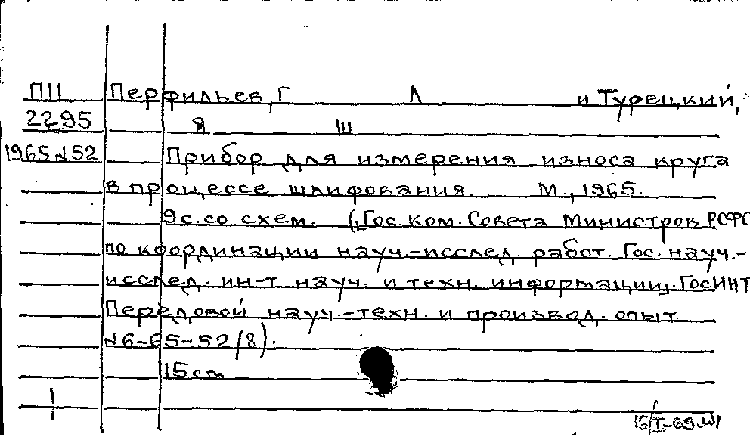 ПII Перфильев, Г Л и Турецкий,
2295 Я Ш
1965 N52 Прибор для измерения износа круга
в процессе шлифования. М., 1965.
9 с. со схем. (Гос. ком. Совета Министров РСФС
по координации науч.-исслед. работ. Гос. науч.-
исслед. ин-т науч. и техн. информации. ГОСИНТ
Передовой науч.-техн. и производ. опыт
N6-65-52/8).
15 см